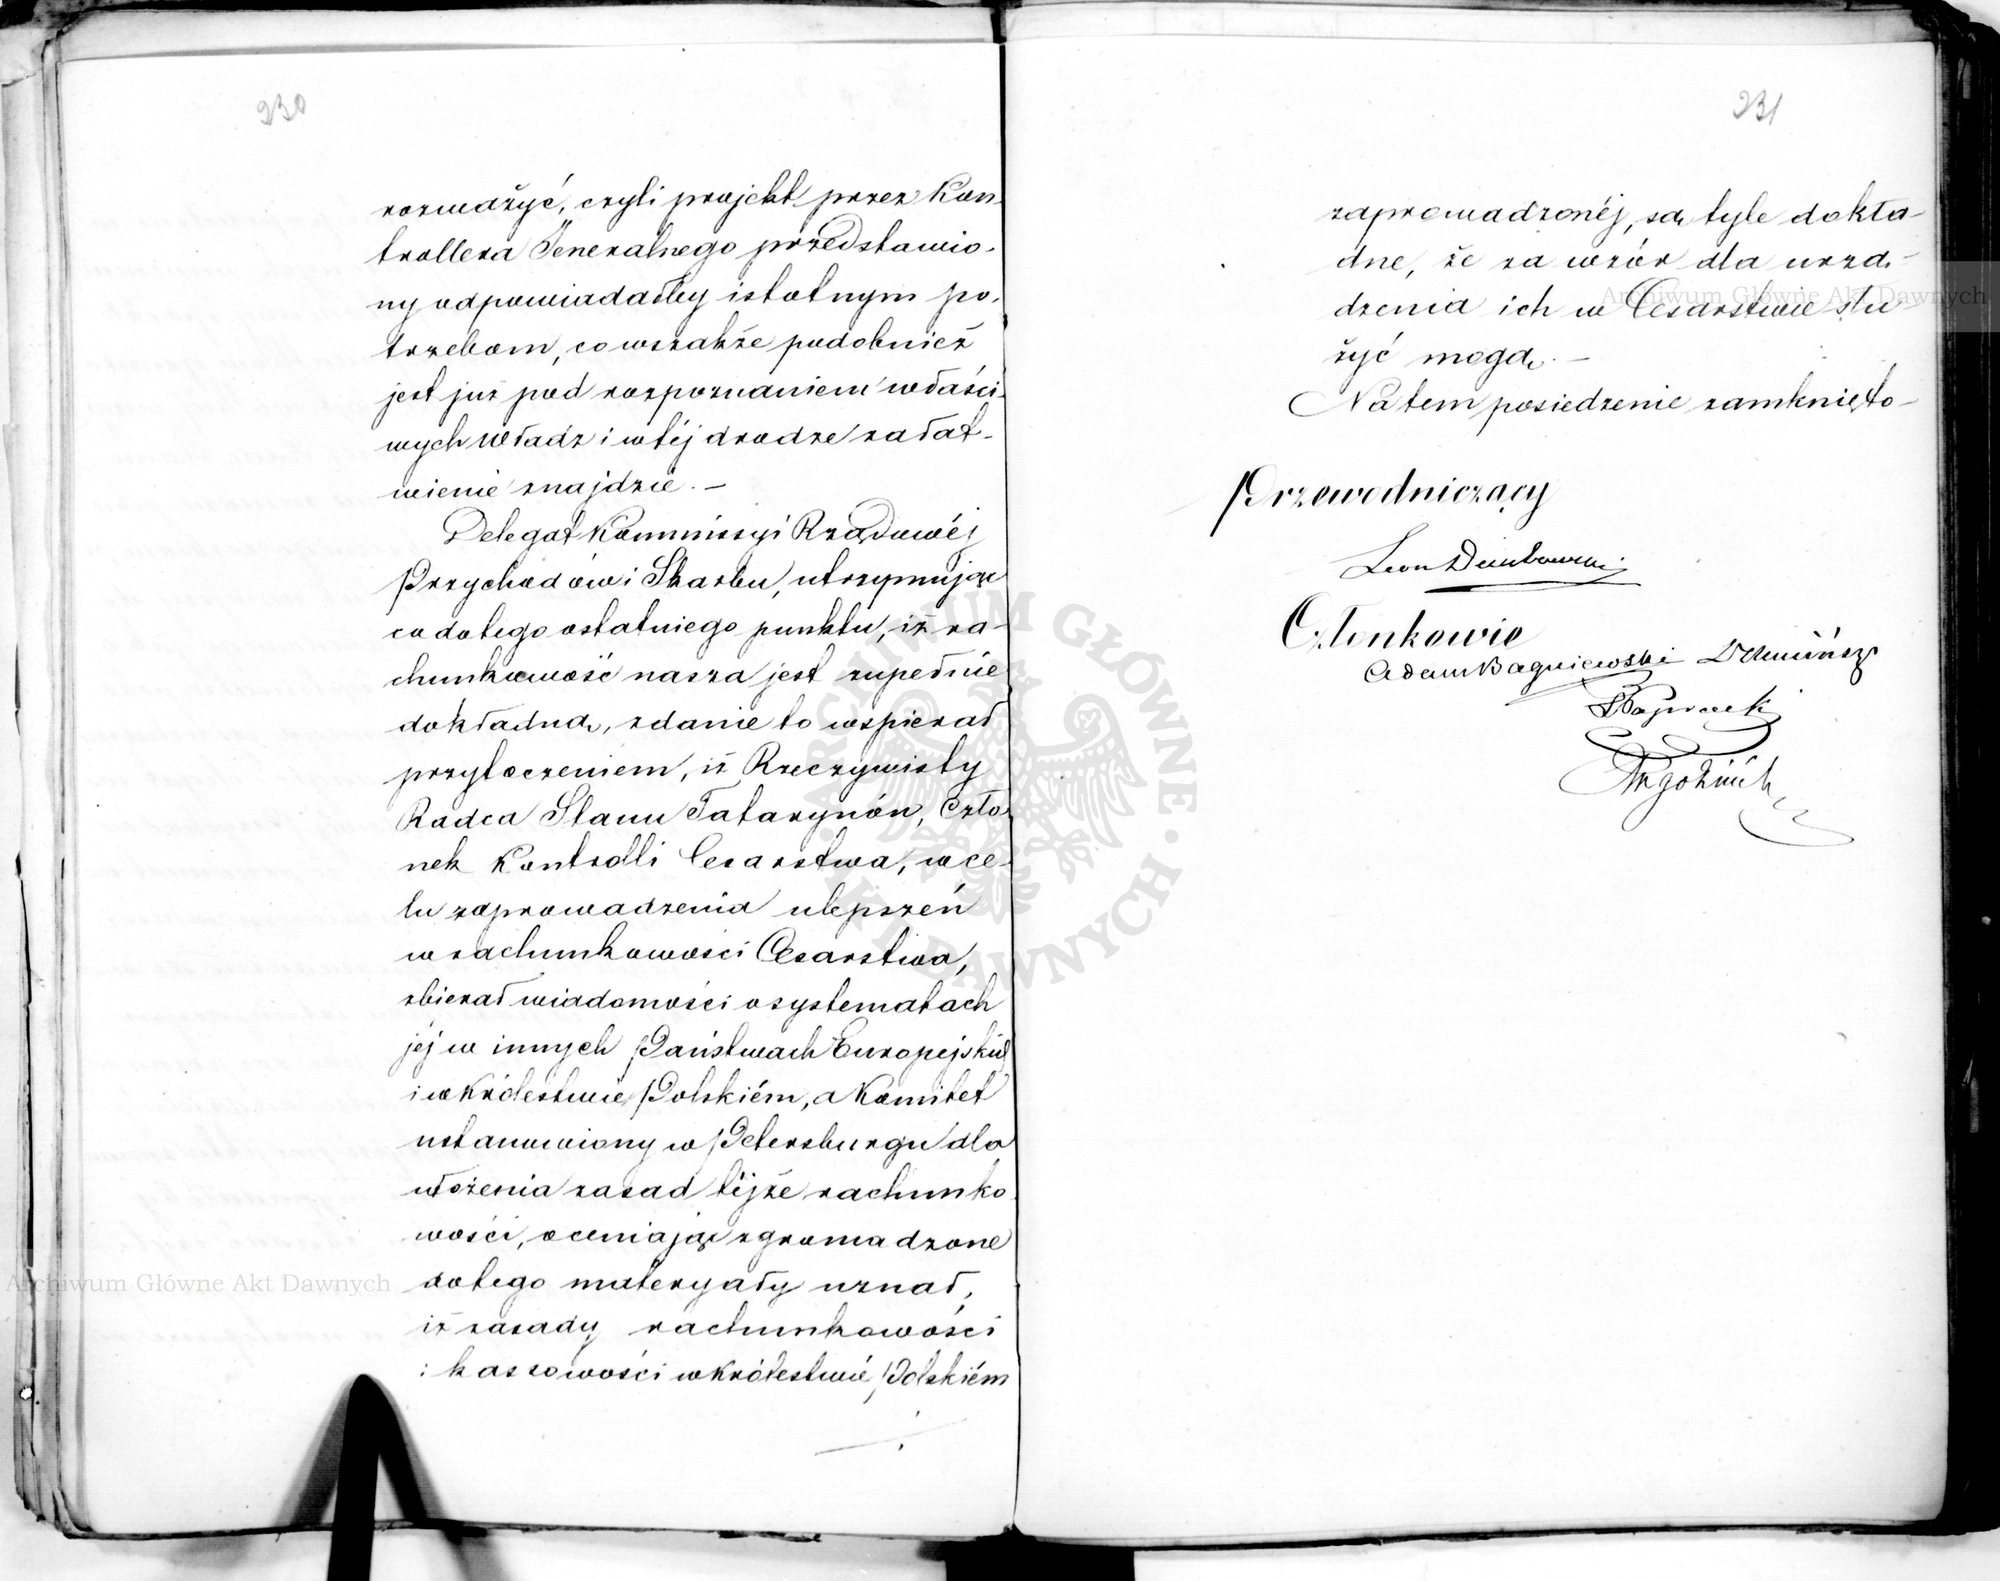 230
rozważyć, czyli projekt przez Kon-
trollera Jeneralnego przedstawio-
ny odpowiadałby istotnym po-
trzebom, co wszakże podobnież
jest już pod rozpoznaniem właści-
wych Władz i w téj drodze załat-
wienie znajdzie. —
Delegat Kommissyi Rządowéj
Przychodów i Skarbu, utrzymując
co do tego ostatniego punktu, iż ra-
chunkowość nasza jest zupełnie
dokładną, zdanie to wspierał
przytoczeniem, iż Rzeczywisty
Radca Stanu Tatarynów, Czło-
nek Kontrolli Cesarstwa, w ce-
lu zaprowadzenia ulepszeń
w rachunkowości Cesarstwa,
zbierał wiadomości o systematach
jéj w innych Państwach Europejskich
i w Królestwie Polskiém, a Komitet
ustanowiony w Petersburgu dla
ułożenia zasad téjże rachunko-
wości, oceniając zgromadzone
do tego materyały uznał,
iż zasady rachunkowości
i kassowości w Królestwie Polskiém
231
zaprowadzonéj, są tyle dokła-
dne, że za wzór dla urzą-
dzenia ich w Cesarstwie słu-
żyć mogą. —
Na tem posiedzenie zamknięto —
Przewodniczący
Leon Dembowski
Członkowie
Adam Bagniewski
Archiwum Główne Akt Dawnych
Archiwum Główne Akt Dawnych
ARCHIWUM GŁÓWNE AKT DAWNYCH